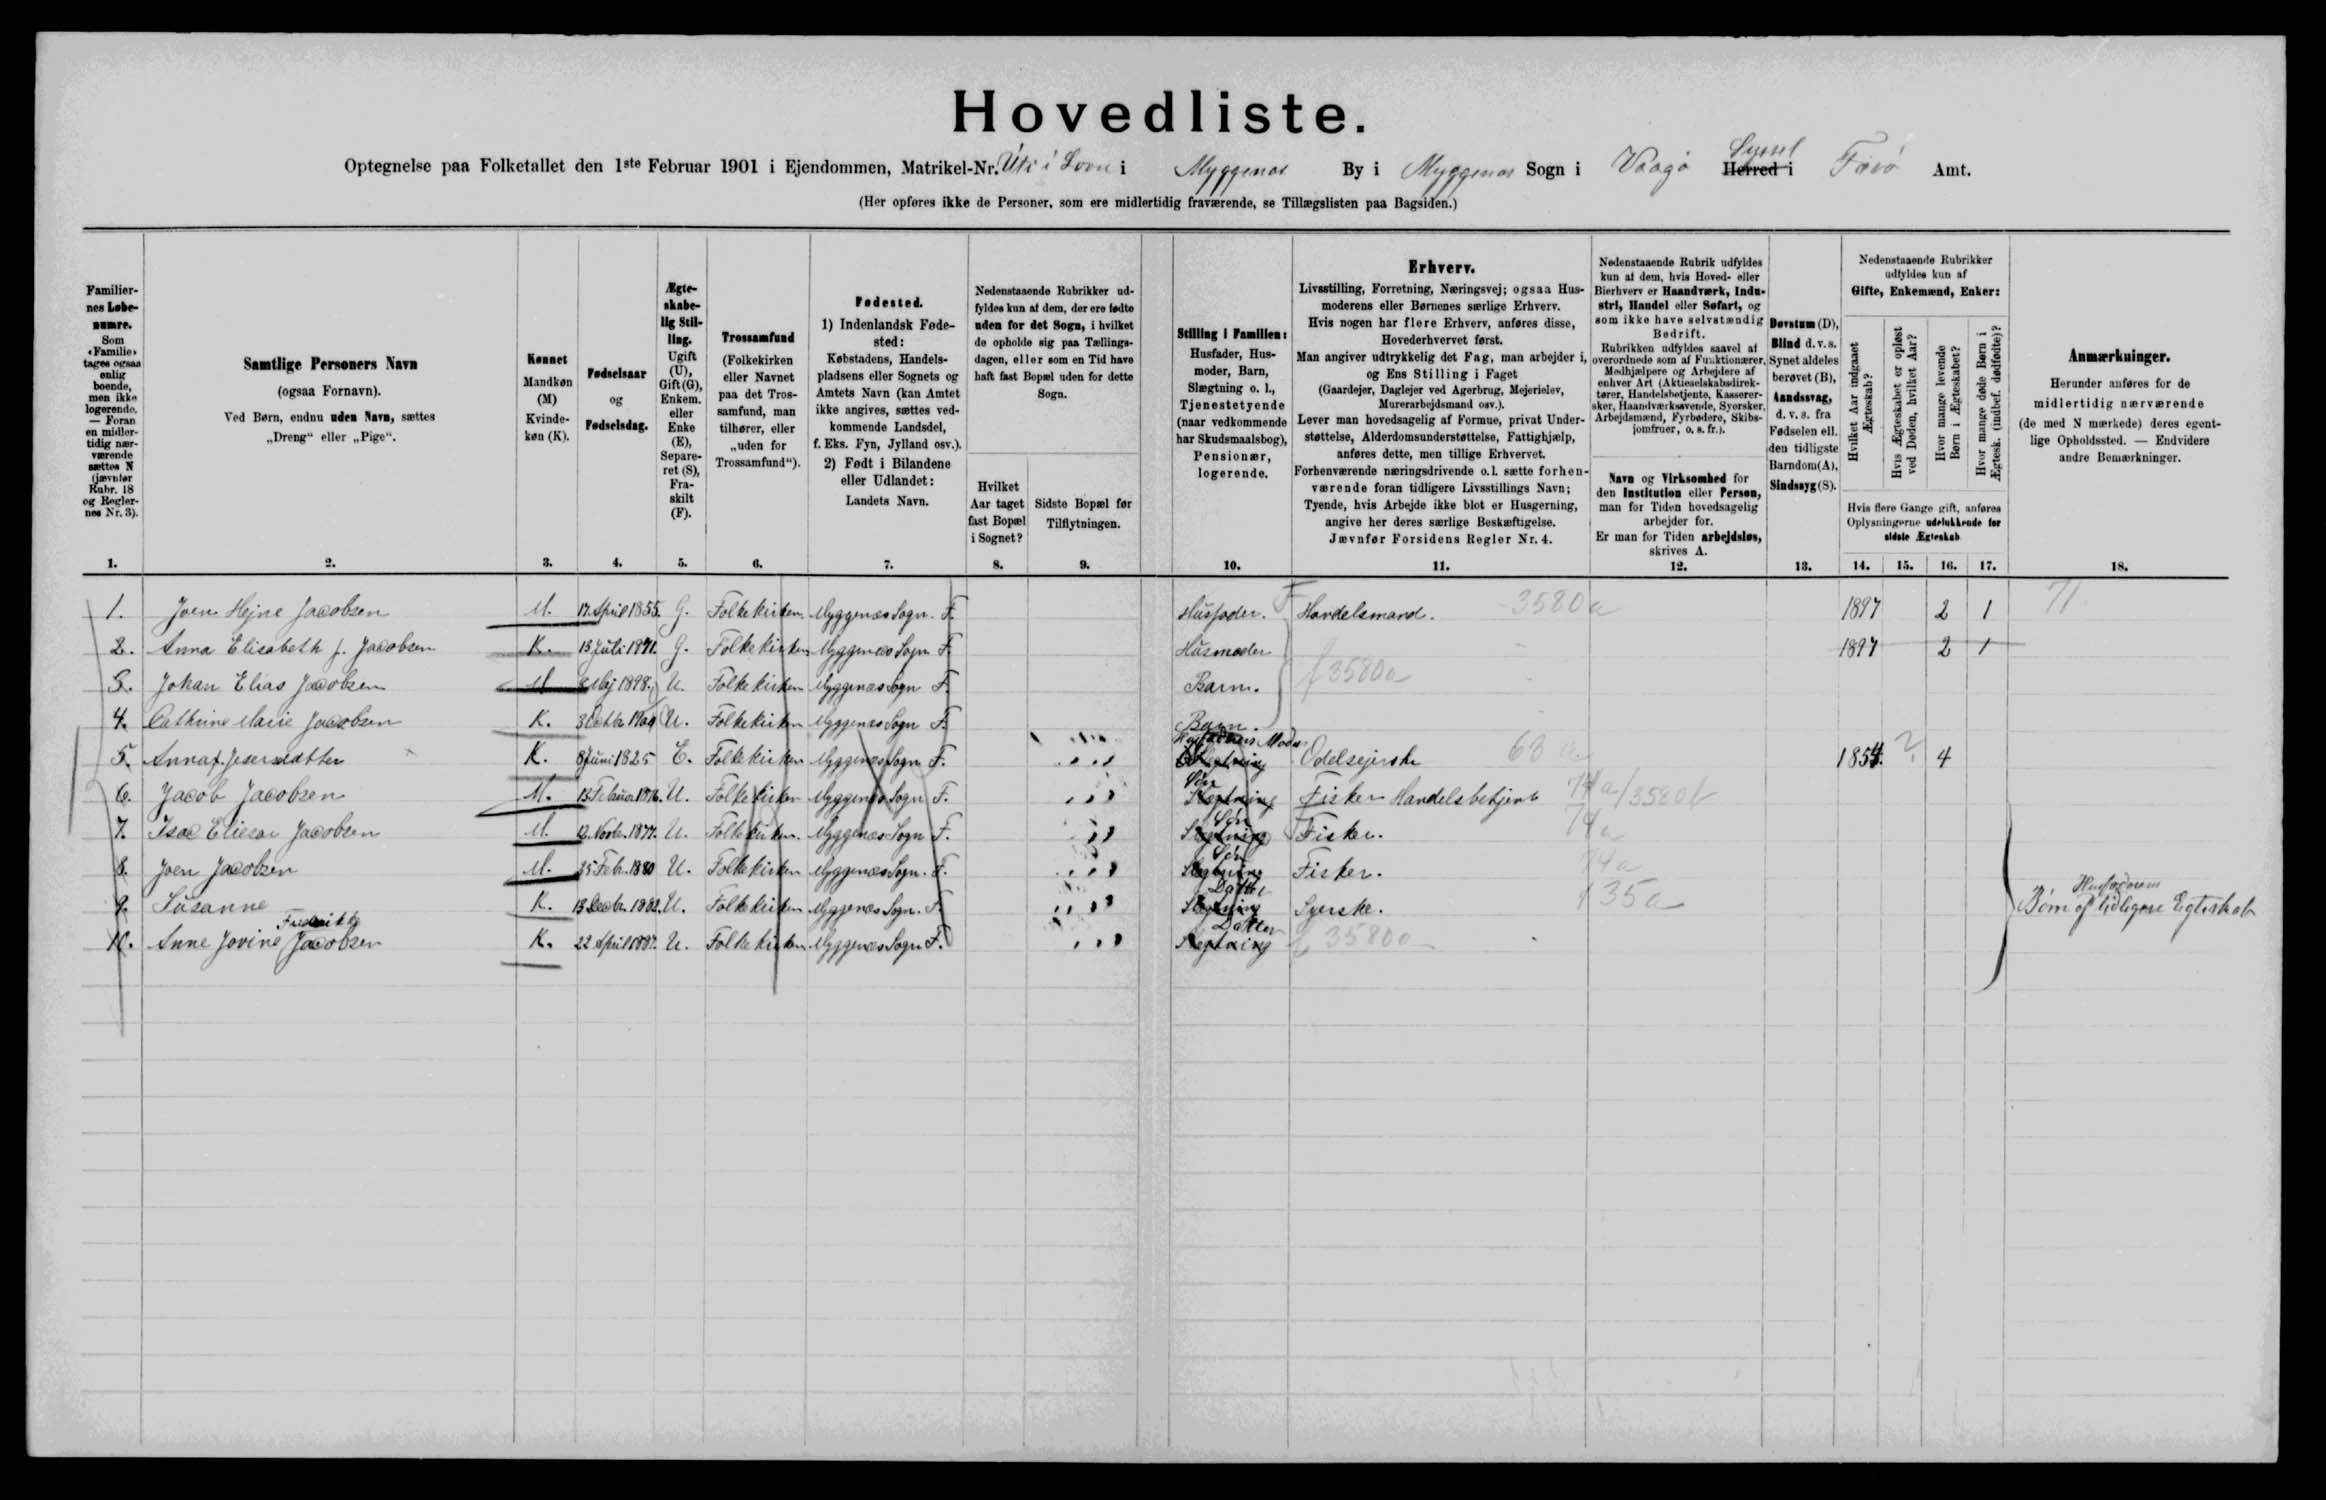 Hovedliste.
Optegnelse paa Folketallet den 1ste Februar 1901 i Ejendommen, Matrikel-Nr. Úti i i Myggenæs By i Myggenæs Sogn i Vaagø Herred Syssel i Færø Amt.
(Her opføres ikke de Personer, som ere midlertidig fraværende, se Tillægslisten paa Bagsiden.)
Familiernes Løbenumre.
Som «Familie» tages ogsaa enlig boende, men ikke logerende. — Foran en midlertidig nærværende sættes N (jævnfør Rubr. 18 og Reglernes Nr. 3).
Samtlige Personers Navn
(ogsaa Fornavn).
Ved Børn, endnu uden Navn, sættes
„Dreng“ eller „Pige“.
Kønnet
Mandkøn (M)
Kvindekøn (K).
Fødselsaar
og
Fødselsdag.
Ægteskabelig Stilling.
Ugift (U), Gift (G), Enkem. eller Enke (E), Separeret (S), Fraskilt (F).
Trossamfund
(Folkekirken eller Navnet paa det Trossamfund, man tilhører, eller „uden for Trossamfund“).
Fødested.
1) Indenlandsk Fødested:
Købstadens, Handelspladsens eller Sognets og Amtets Navn (kan Amtet ikke angives, sættes vedkommende Landsdel, f. Eks. Fyn, Jylland osv.).
2) Født i Bilandene eller Udlandet:
Landets Navn.
Nedenstaaende Rubrikker udfyldes kun af dem, der ere fødte uden for det Sogn, i hvilket de opholde sig paa Tællingsdagen, eller som en Tid have haft fast Bopæl uden for dette Sogn.
Hvilket Aar taget fast Bopæl i Sognet?
Sidste Bopæl før Tilflytningen.
Stilling i Familien:
Husfader, Husmoder, Barn, Slægtning o. l., Tjenestetyende (naar vedkommende har Skudsmaalsbog), Pensionær, logerende.
Erhverv.
Livsstilling, Forretning, Næringsvej; ogsaa Husmoderens eller Børnenes særlige Erhverv.
Hvis nogen har flere Erhverv, anføres disse, Hovederhvervet først.
Man angiver udtrykkelig det Fag, man arbejder i, og Ens Stilling i Faget
(Gaardejer, Daglejer ved Agerbrug, Mejerielev, Murerarbejdsmand osv.).
Lever man hovedsagelig af Formue, privat Understøttelse, Alderdomsunderstøttelse, Fattighjælp, anføres dette, men tillige Erhvervet.
Forhenværende næringsdrivende o. l. sætte forhenværende foran tidligere Livsstillings Navn;
Tyende, hvis Arbejde ikke blot er Husgerning, angive her deres særlige Beskæftigelse.
Jævnfør Forsidens Regler Nr. 4.
Nedenstaaende Rubrik udfyldes kun af dem, hvis Hoved- eller Bierhverv er Haandværk, Industri, Handel eller Søfart, og som ikke have selvstændig Bedrift.
Rubrikken udfyldes saavel af overordnede som af Funktionærer, Medhjælpere og Arbejdere af enhver Art (Aktieselskabsdirektører, Handelsbetjente, Kasserersker, Haandværkssvende, Syersker, Arbejdsmænd, Fyrbødere, Skibsjomfruer, o. s. fr.).
Navn og Virksomhed for den Institution eller Person, man for Tiden hovedsagelig arbejder for.
Er man for Tiden arbejdsløs, skrives A.
Døvstum (D), Blind d. v. s. Synet aldeles berøvet (B), Aandssvag, d. v. s. fra Fødselen ell. den tidligste Barndom (A), Sindssyg (S).
Nedenstaaende Rubrikker udfyldes kun af
Gifte, Enkemænd, Enker:
Hvilket Aar indgaaet Ægteskab?
Hvis Ægteskabet er opløst ved Døden, hvilket Aar?
Hvor mange levende Børn i Ægteskabet?
Hvor mange døde Børn i Ægtesk. (indbef. dødfødte)?
Hvis flere Gange gift, anføres Oplysningerne udelukkende for sidste Ægteskab
Anmærkninger.
Herunder anføres for de midlertidig nærværende (de med N mærkede) deres egentlige Opholdssted. — Endvidere andre Bemærkninger.
1. 2. 3. 4. 5. 6. 7. 8. 9. 10. 11. 12. 13. 14. 15. 16. 17. 18.
1. Joen Hejne Jacobsen M. 17. April 1855. G. Folkekirken Myggenæs Sogn. F. Husfader. F Handelsmand. 3580a 1897 2 1 71
2. Anna Elisabeth f. Jacobsen K. 13 Juli 1871. G. Folkekirken Myggenæs Sogn F. Husmoder 1897 2 1
3. Johan Elias Jacobsen M Maj 1898. U. Folkekirken Myggenæs Sogn F. Barn. f 3580a
4. Cathrine Marie Jacobsen K. U. Folkekirken Myggenæs Sogn F. Barn.
5. Anna f. Joensdatter K. 8 Juni 1825 E. Folkekirken Myggenæs Sogn F. Husfaders Moder Slægtning Odelsejerske 63 a 1854. ? 4
6. Jacob Jacobsen M. 13. Februar 1876. U. Folkekirken Myggenæs Sogn F. Søn Slægtning Fisker Handelsbetjent 74a/3580b
7. Isac Eliesar Jacobsen M. 12. Novbr. 1877. U. Folkekirken. Myggenæs Sogn F. Søn Slægtning Fisker. 74a
8. Joen Jacobsen M. 25 Febr. 1880 U. Folkekirken Myggenæs Sogn. F. Søn Slægtning Fisker. 74a
9. Susanne K. 13 Decbr. 1882. U. Folkekirken Myggenæs Sogn. F. Datter Slægtning Syerske. 135a Husfaderens Børn af tidligere Egteskab
10. Anne Jovine Frederikke Jacobsen K. 22 April 1887. U. Folkekirken Myggenæs Sogn F. Datter Slægtning f 3580a